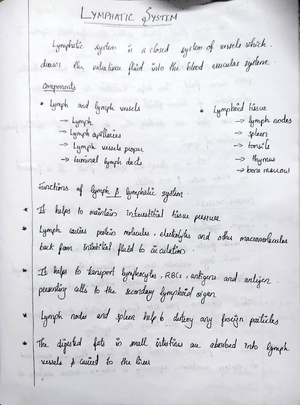 LYMPHATIC SYSTEM
Lymphatic system is a closed system of vessels which
draws the extra fluid into the blood vascular system.
Components
• Lymph and lymph vessels
→ Lymph
→ Lymph capillaries
→ Lymph vessels proper
→ terminal lymph ducts
• Lymphoid tissue
→ lymph nodes
→ spleen
→ tonsils
→ thymus
→ bone marrow
Functions of lymph & lymphatic system
It helps to maintain interstitial tissue pressure.
Lymph carries protein molecules, electrolytes and other macromolecules
back from interstitial fluid to circulation.
It helps to transport lymphocytes, RBCs, antigens and antigen
presenting cells to the secondary lymphoid organ
Lymph nodes and spleen help to destroy any foreign particles
The digested fats in small intestine are absorbed into lymph
vessels & carried to the liver